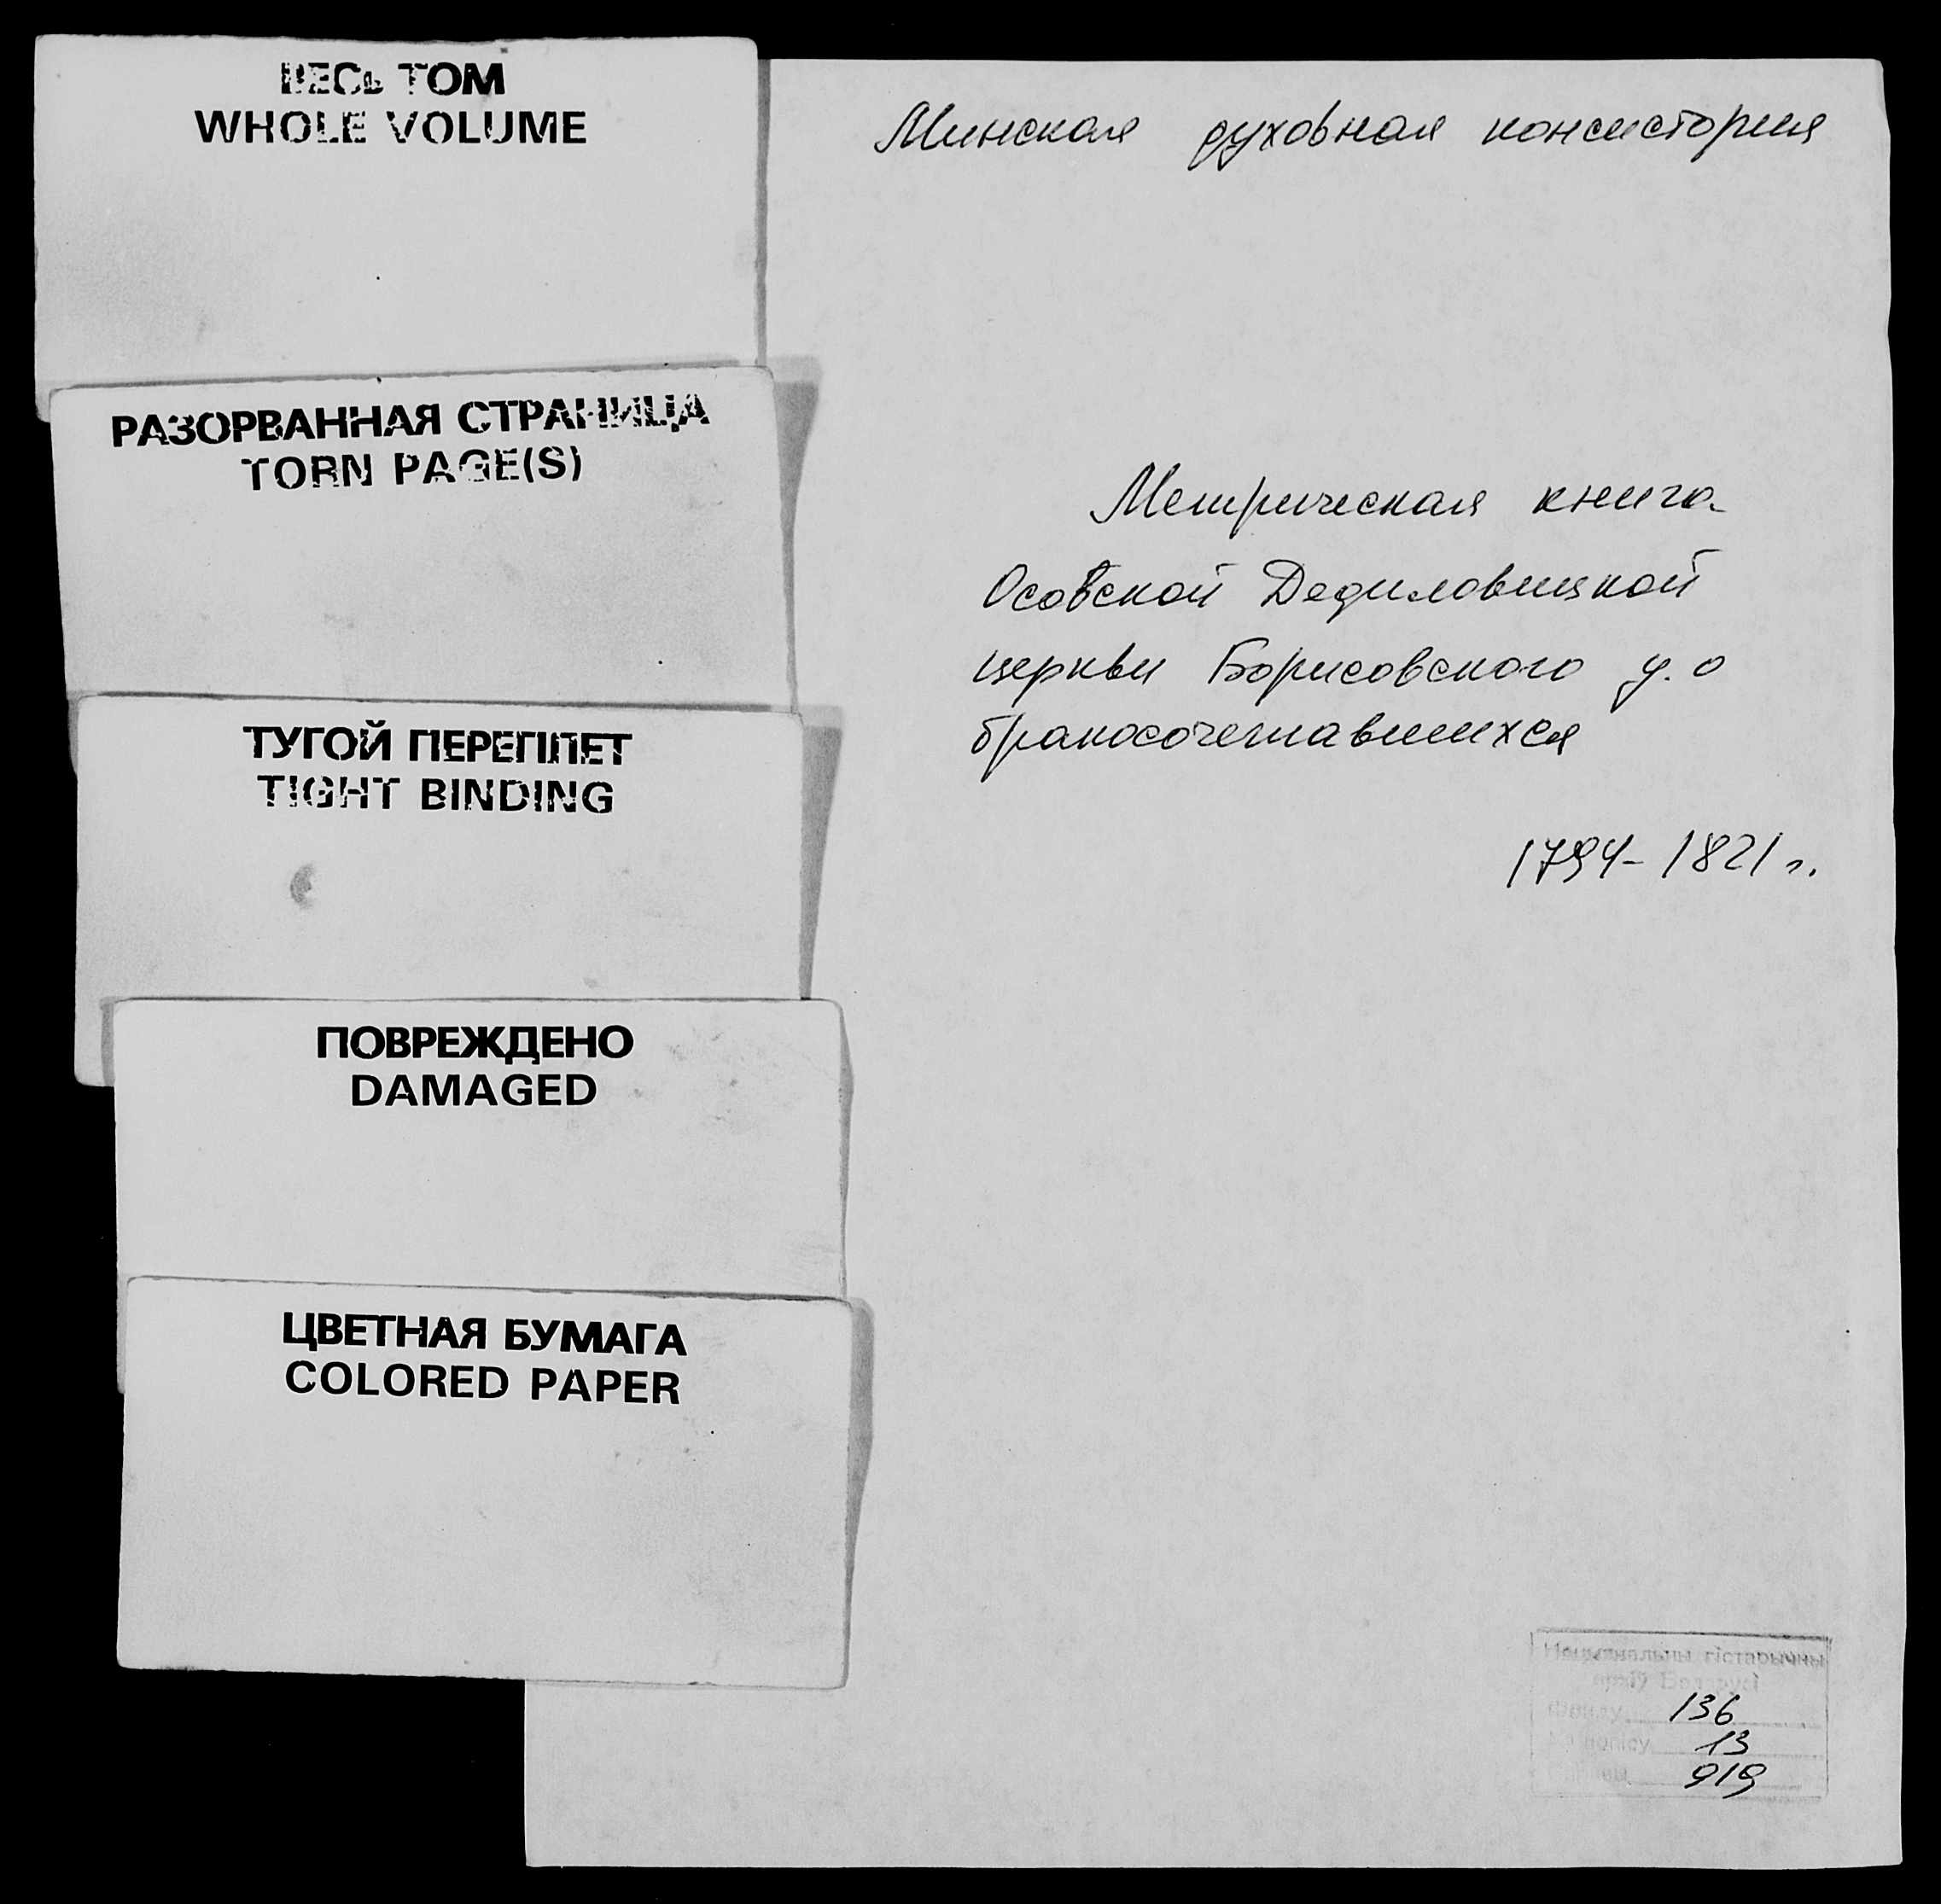 ВЕСЬ ТОМ
WHOLE VOLUME
РАЗОРВАННАЯ СТРАНИЦА
TORN PAGE(S)
ТУГОЙ ПЕРЕПЛЕТ
TIGHT BINDING
ПОВРЕЖДЕНО
DAMAGED
ЦВЕТНАЯ БУМАГА
COLORED PAPER
Минская духовная консистория
Метрическая книга
Осовской Дедиловицкой
церкви Борисовского у. о
бракосочетавшихся
1794-1821 г.
Нацыянальны гістарычны
архіў Беларусі
Фонду 136
№ вопісу 13
919